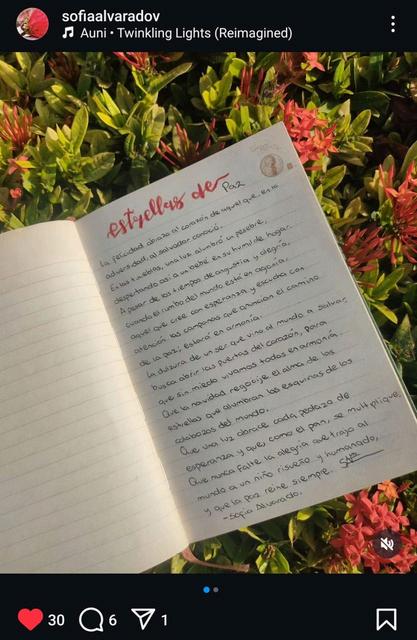 sofiaalvaradov
Auni • Twinkling Lights (Reimagined)
estrellas de Paz
La felicidad abraza al corazón de aquel que, en la
adversidad, al salvador conoció.
En las tinieblas, una luz alumbró un pesebre,
despertando así a un bebé en su humilde hogar.
A pesar de los tiempos de angustia y alegría,
cuando el rumbo del mundo está en agonía,
aquel que cree con esperanza y escucha con
atención las campanas que anuncian el camino
de la paz, estará en armonía.
La dulzura de un ser que vino al mundo a salvar,
busca abrir las puertas del corazón, para
que sin miedo vivamos todos en armonía.
Que la navidad regocije el alma de las
estrellas que alumbran las esquinas de los
calabozos del mundo.
Que una luz abrace cada pedazo de
esperanza y que, como el pan, se multiplique.
Que nunca falte la alegría que trajo al
mundo a un niño risueño y humanado,
y que la paz reine siempre.
-Sofía Alvarado.
30 6 1